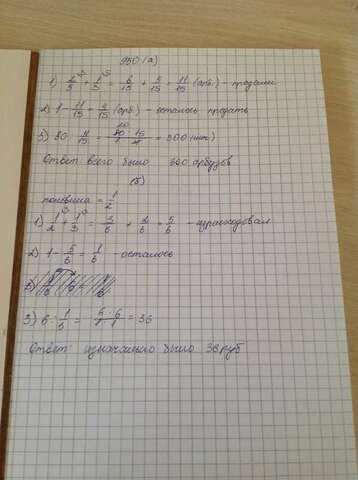 950 (а)
1) 2/5 + 1/3 = 6/15 + 5/15 = 11/15 (арб.) - продали
2) 1 - 11/15 = 4/15 (арб) - осталось продать
3) 80 : 4/15 = 80/1 · 15/4 = 300 (шт)
Ответ всего было 300 арбузов
(б)
половина = 1/2
1) 1/2 + 1/3 = 3/6 + 2/6 = 5/6 - израсходовал
2) 1 - 5/6 = 1/6 - осталось
3) 6 : 1/6 = 6/1 · 6/1 = 36
Ответ: изначально было 36 руб